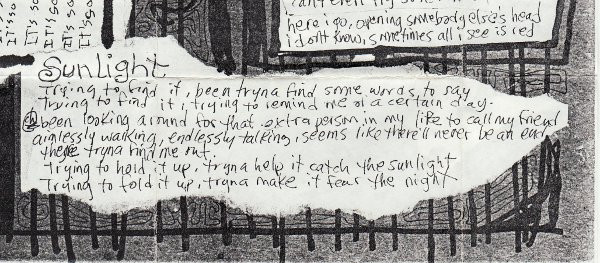 It's so
It's so
It's so
It's so
here i go, opening somebody else's head
i dont know, sometimes all i see is red
Sunlight
Trying to find it, been tryna find some words to say
Trying to find it, trying to remind me of a certain day.
been looking around for that extra person in my life to call my friend
aimlessly walking, endlessly talking, seems like there'll never be an end
tryna find me out.
Trying to hold it up, tryna help it catch the sunlight
Trying to fold it up, tryna make it fear the night